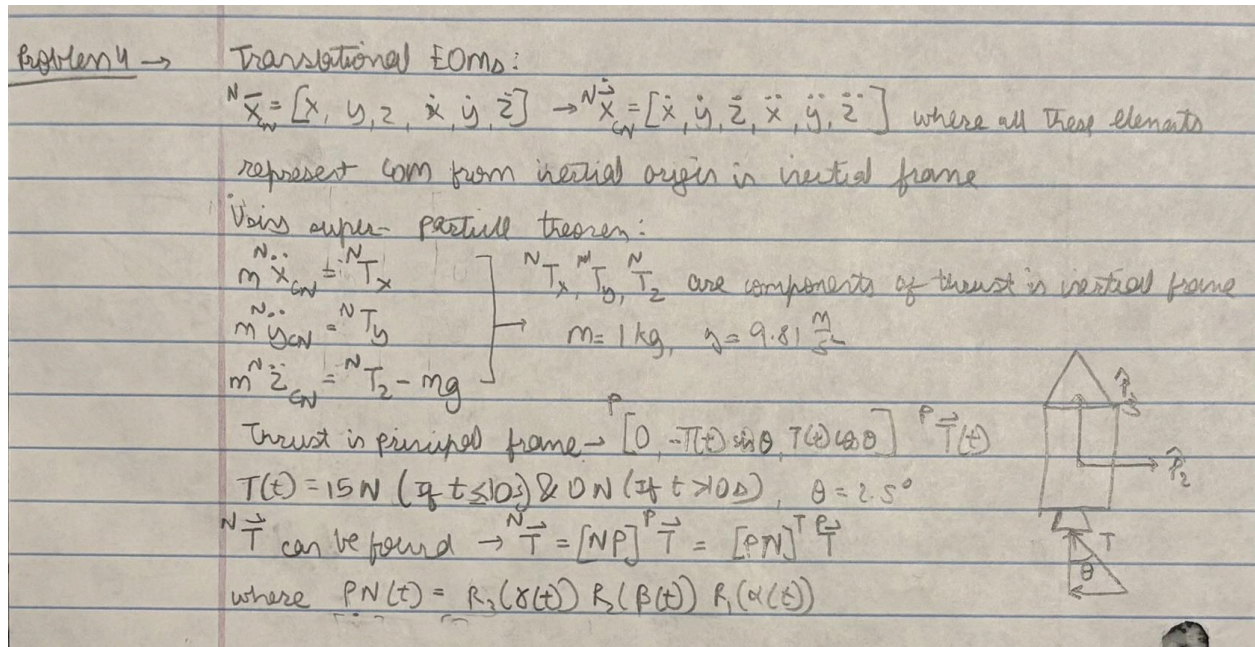 Problem 4 → Translational EOMs:
ᴺx̄_CN = [x, y, z, ẋ, ẏ, ż] → ᴺẋ⃗_CN = [ẋ, ẏ, ż, ẍ, ÿ, z̈] where all these elements
represent COM from inertial origin in inertial frame
Using super-particle theorem:
m ᴺẍ_CN = ᴺT_x
ᴺT_x, ᴺT_y, ᴺT_z are components of thrust in inertial frame
m ᴺÿ_CN = ᴺT_y → m = 1 kg, g = 9.81 m/s²
m ᴺz̈_CN = ᴺT_z - mg
Thrust in principal frame → ᴾ[0, -T(t) sin θ, T(t) cos θ] ᴾT⃗(t)
T(t) = 15 N (If t ≤ 10s) & 0 N (If t > 10s), θ = 2.5°
ᴺT⃗ can be found → ᴺT⃗ = [NP] ᴾT⃗ = [PN]ᵀ ᴾT⃗
where PN(t) = R₃(γ(t)) R₂(β(t)) R₁(α(t))
p̂₃
p̂₂
T
θ